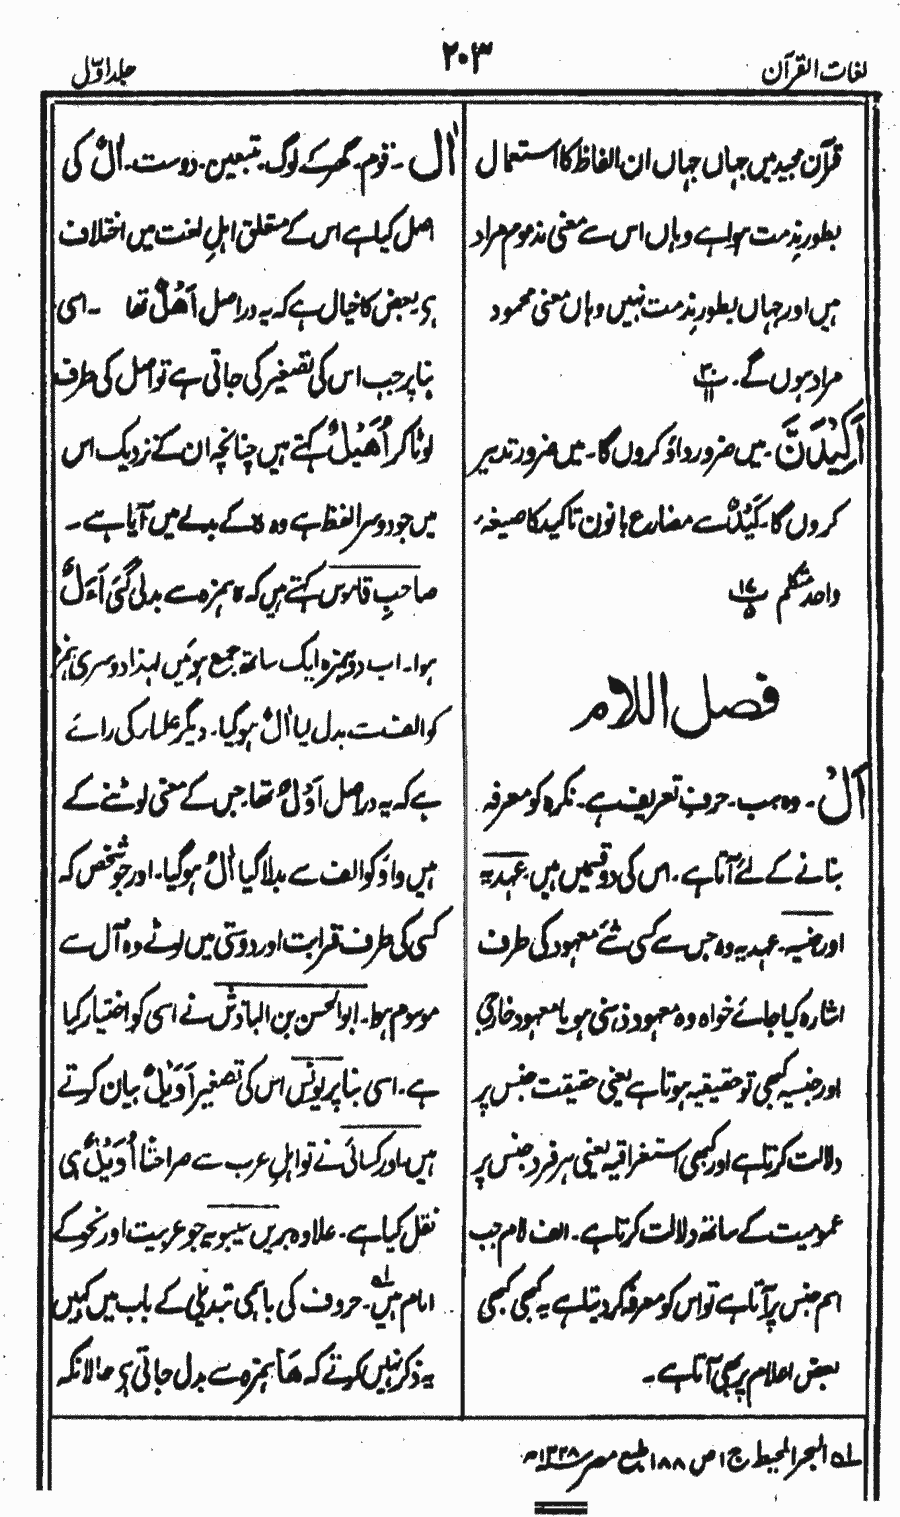 لغات القرآن
۲۰۳
جلد اوّل
قرآن مجید میں جہاں جہاں ان الفاظ کا استعمال
بطور مذمت ہوا ہے وہاں اس سے معنی مذموم مراد
ہیں اور جہاں بطور مذمت نہیں وہاں معنی محمود
مراد ہوں گے۔ پ۳۰/۱۱
اَکِیْدَنَّ۔ میں ضرور داؤ کروں گا۔ میں ضرور تدبیر
کروں گا۔ کَیْدٌ سے مضارع با نون تاکید کا صیغہ
واحد متکلم پ۱۷/۵
فصل اللام
اَلْ۔ وہ ہے۔ حرف تعریف ہے۔ نکرہ کو معرفہ
بنانے کے لئے آتا ہے۔ اس کی دو قسمیں ہیں۔ عہدیہ
اور جنسیہ۔ عہدیہ وہ جس سے کسی شئے معہود کی طرف
اشارہ کیا جائے خواہ وہ معہود ذہنی ہو یا معہود خارجی
اور جنسیہ کبھی تو حقیقیہ ہوتا ہے یعنی حقیقت جنس پر
دلالت کرتا ہے اور کبھی استغراقیہ یعنی ہر فرد جنس پر
عمومیت کے ساتھ دلالت کرتا ہے۔ الف لام جب
اسم جنس پر آتا ہے تو اس کو معرفہ کر دیتا ہے یہ کبھی کبھی
بعض اعلام پر بھی آتا ہے۔
اٰل۔ قوم۔ گھر کے لوگ۔ متبعین۔ دوست۔ اٰلٌ کی
اصل کیا ہے اس کے متعلق اہلِ لغت میں اختلاف
ہے بعض کا خیال ہے کہ یہ دراصل اَھْلٌ تھا۔ اسی
بنا پر جب اس کی تصغیر کی جاتی ہے تو اصل کی طرف
لوٹا کر اُھَیْلٌ کہتے ہیں چنانچہ ان کے نزدیک اس
میں جو دوسرا لفظ ہے وہ ہ کے بدلے میں آیا ہے۔
صاحبِ قاموس کہتے ہیں کہ ہ ہمزہ سے بدلی گئی اَءْلٌ
ہوا۔ اب دو ہمزہ ایک ساتھ جمع ہوئیں لہذا دوسری ہمزہ
کو الف سے بدل لیا اٰلٌ ہو گیا۔ دیگر علمار کی رائے
ہے کہ یہ دراصل اَوْلٌ تھا۔ جس کے معنی لوٹنے کے
ہیں واؤ کو الف سے بدلا گیا اٰلٌ ہو گیا۔ اور جو شخص کہ
کسی کی طرف قرابت اور دوستی میں لوٹے وہ آل سے
موسوم ہوا۔ ابو الحسن بن الباذش نے اسی کو اختیار کیا
ہے۔ اسی بنا پر یونس اس کی تصغیر اُوَیْلٌ بیان کرتے
ہیں اور کسائی نے تو اہلِ عرب سے صراحتًا اُوَیْلٌ ہی
نقل کیا ہے۔ علاوہ بریں سیبویہ جو عربیت اور نحو کے
امام ہیں۔ حروف کی باہمی تبدیلی کے باب میں کہیں
یہ ذکر نہیں کرتے کہ ھَا ہمزہ سے بدل جاتی ہے حالانکہ
لہ البحر المحیط ج ۱ ص ۱۸۸ طبع مصر ۱۳۲۸ھ